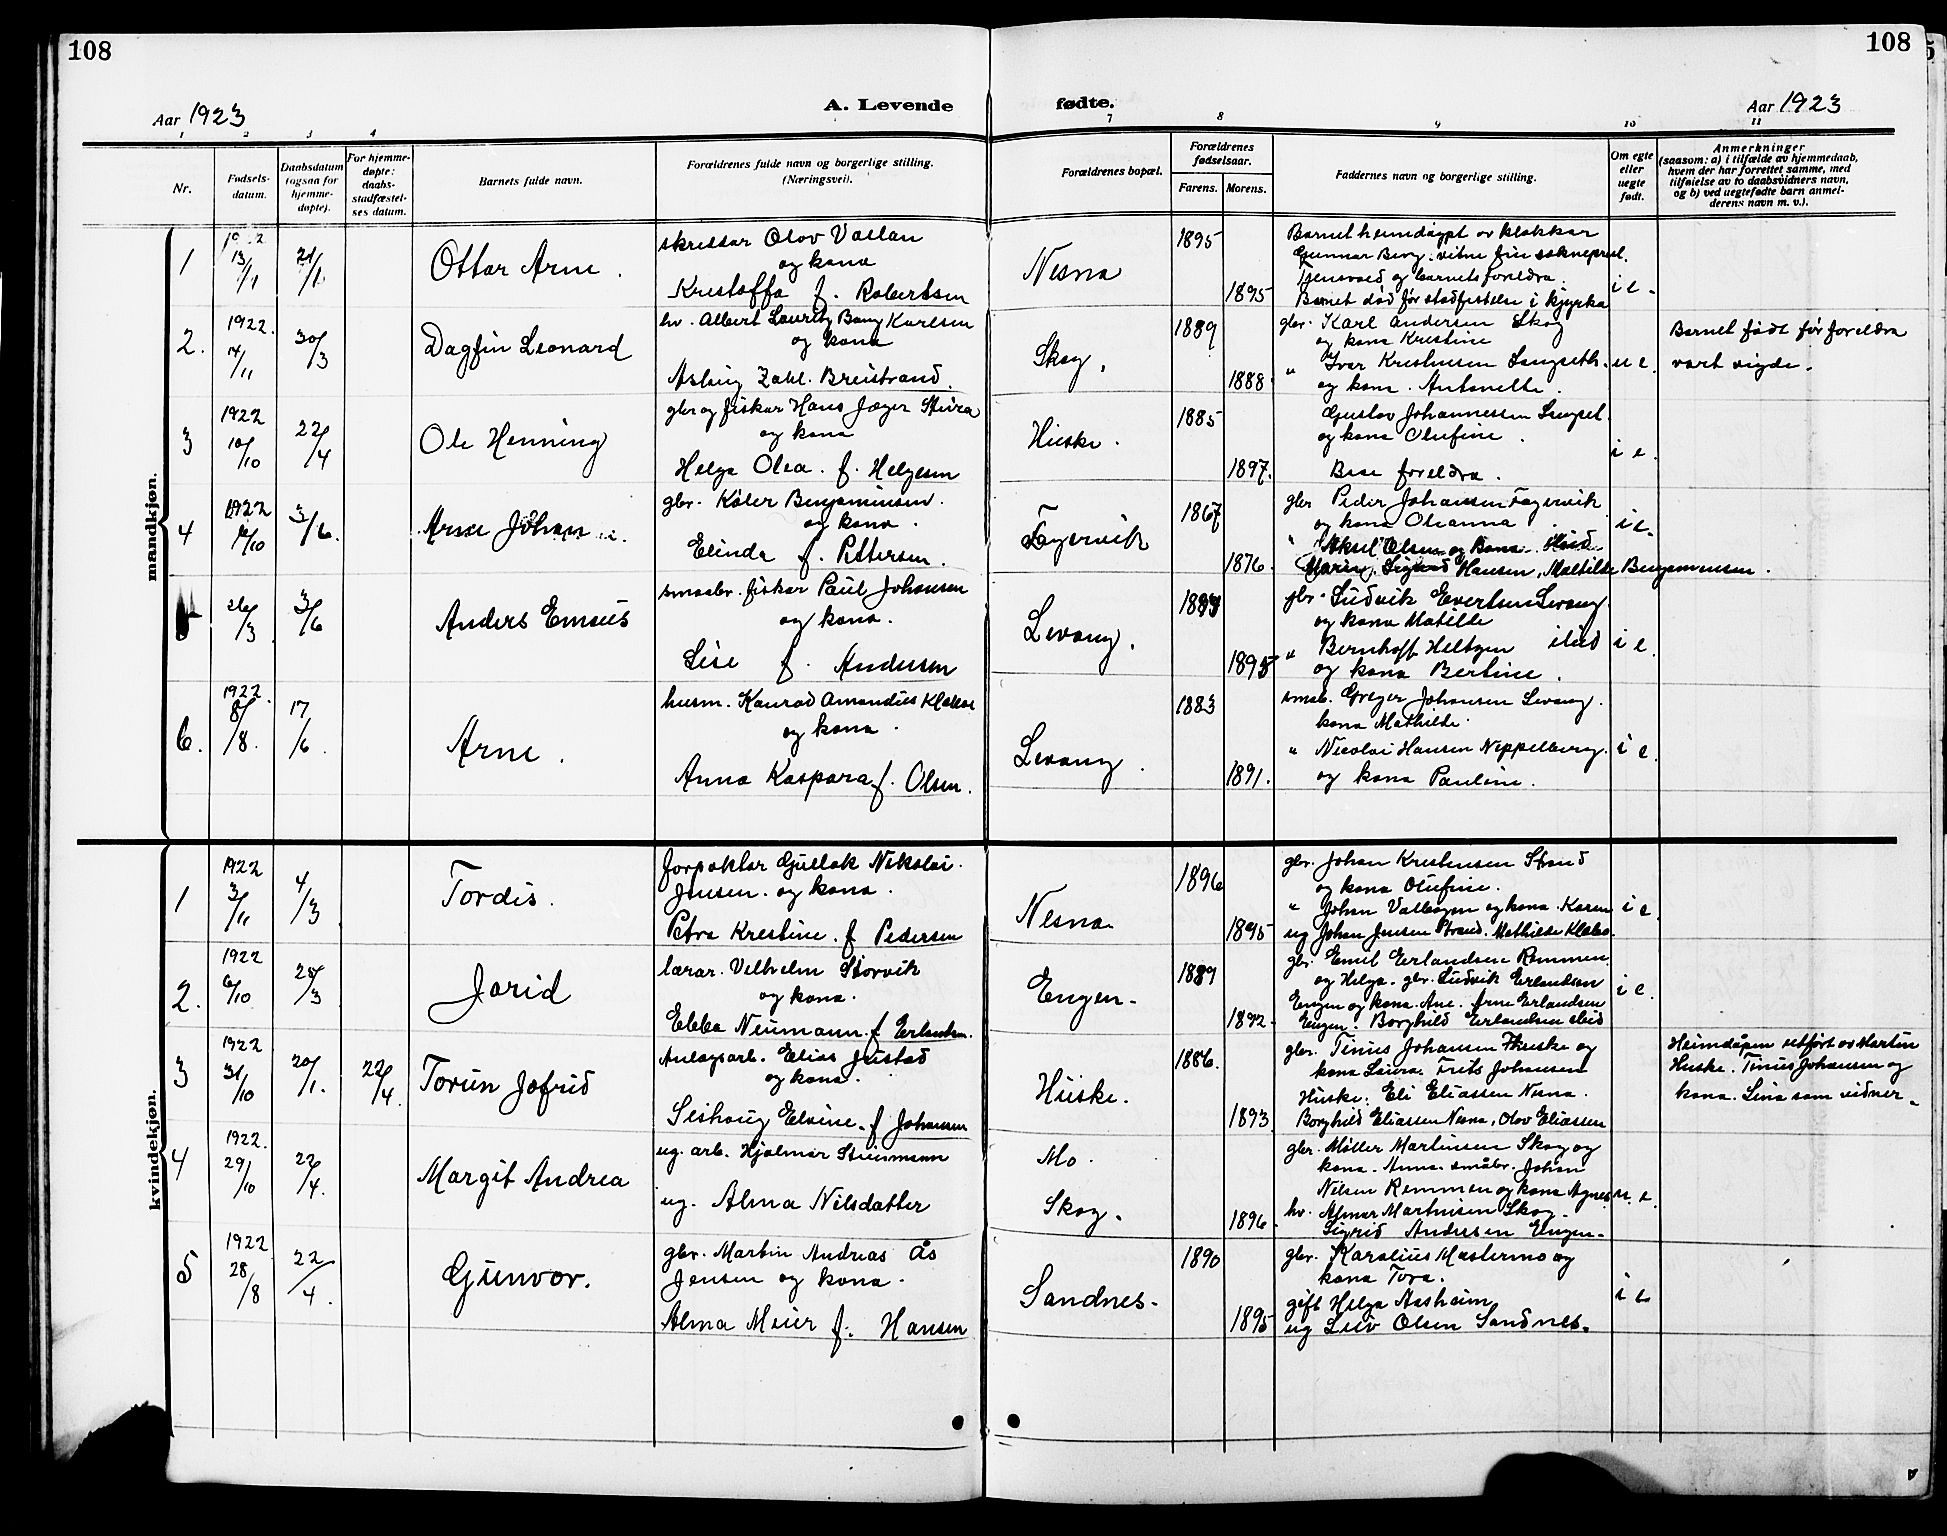 108
108
Aar 1923
A. Levende
fødte.
Aar 1923
1 2 3 4 7 8 9 10 11
Nr.
Fødsels-
datum.
Daabsdatum
(ogsaa for
hjemme-
døpte).
For hjemme-
døpte:
daabs-
stadfæstel-
ses datum.
Barnets fulde navn.
Forældrenes fulde navn og borgerlige stilling.
(Næringsvei).
Forældrenes bopæl.
Forældrenes
fødselsaar.
Farens. Morens.
Faddernes navn og borgerlige stilling.
Om egte
eller
uegte
født.
Anmerkninger
(saasom: a) i tilfælde av hjemmedaab,
hvem der har forrettet samme, med
tilføielse av to daabsvidners navn,
og b) ved uegtefødte barn anmel-
derens navn m. v.).
mandkjøn.
1
13/11
21/1
Ottar Arne.
skreddar Olov Vallan
og kona
Kristoffa f. Robertsen
Nesna
1895
1895
Barnet heimdøypt av klokkar
Gunnar Berg. vitne fru sokneprest
og barnets foreldra.
Barnet død før stadfestelse i kjyrka
i e.
2.
1922.
14/11
30/3
Dagfin Leonard
hv. Albert Lauritz Bang Karlsen
og kona
Aslaug Zahl. Breistrand.
Skog.
1889
1888.
gbr. Karl Andersen Skog
og kona Kristine
" Ivar Kristensen Langseth.
og kona. Antonette.
u e.
Barnet født før foreldra
vart vigde.
3
1922
10/10
22/4
Ole Henning
gbr og fiskar Hans Jæger Stivra
og kona
Helga Olea. f. Helgesen
Huske.
1885
1897.
Gustav Johannessen Langset
og kona Olufine.
Base foreldra.
i e.
4
1922
/10
3/6.
Arne Johan
gbr. Køler Benjaminsen.
og kona.
Elinda f. Pettersen.
Fagervik
1867
1876.
gbr Peder Johansen Fagervik
og kona Oleanna
" Aksel Olsen og kona.
Marie, Sigurd Hansen, Matilde Benjaminsen.
i e.
26/3
3/6
Anders Emeus
smaabr. fiskar Paul Johansen
og kona.
Lise f. Andersen
Levang.
1895
gbr. Ludvik Evertsen Levang.
og kona Matilde
" Bernhoff Heltzen isted
og kona Bertine.
i e.
6.
1922.
8/8.
17/6.
Arne.
husm. Konrad Amandius Klæboe
og kona.
Anna Kaspara f. Olsen.
Levang.
1883
1891.
smab. Greger Johansen Levang.
kona Mathilde.
" Nicolai Hansen Neppelberg.
og kona Pauline.
i e.
kvindekjøn.
1
1922
3/11
4/3
Tordis.
forpaktar Gullak Nikolai.
Jensen. og kona.
Petra Kristine. f Pedersen
Nesna.
1896
1895
gbr. Johan Kristensen Strand
og kona Olufine.
" Johan Valbogen og kona. Karen
ug Johan Jensen Strand. Mathilde Klæbo.
i e.
2.
1922
6/10
25/3
Jorid
lærar. Vilhelm Storvik
og kona.
Ebba Neumann f Erlandsen.
Engen.
1889
1892.
gbr. Emil Erlandsen Remmen.
og Helga. gbr. Ludvik Erlandsen
Engen og kona. Ane. Arne Erlandsen
Engen. Borghild Erlandsen sted
i e.
3
1922
31/10
20/1.
22/4.
Torun Jofrid
Anlegsarb. Elias Justad
og kona.
Sishaug Elvine. f Johansen
Huske.
1886.
1893.
gbr. Tinus Johansen Huske og
kona Laura. Frits Johansen
Huske. Eli Eliassen Nesna.
Borghild Eliassen Nesna, Olov Eliassen
Heimdåpen utført av Martin
Huske. Tinus Johansen og
kona. Lina som vidner.
4
1922.
29/10
22/4.
Margit Andrea
ug. arb. Hjalmar Steinmann
ug. Alma Nilsdatter
Mo.
Skog.
1896.
gbr. Møller Martinsen Skog og
kona. Anna. småbr. Johan
Nilsen Remmen og kona Agnes
hv. Almar Martinsen Skog.
Sigrid Andersen Engen.
u. e.
5
1922
28/8
22/4.
Gunvor.
gbr. Martin Andreas Ås
Jensen og kona.
Alma Meier f. Hansen
Sandnes.
1890
1895
gbr. Karolius Mastermo og
kona Tora.
gift Helga Aasheim
ug Liv Olsen Sandnes.
i e